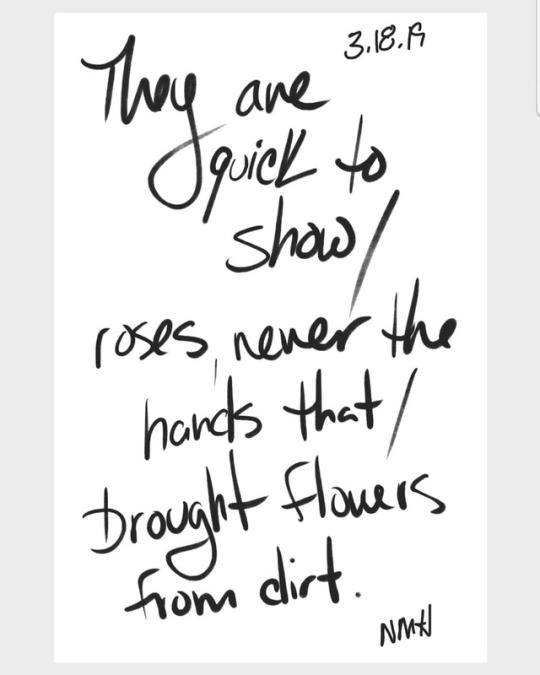 3.18.19
They are
quick to
show/
roses, never the
hands that/
brought flowers
from dirt.
NMH